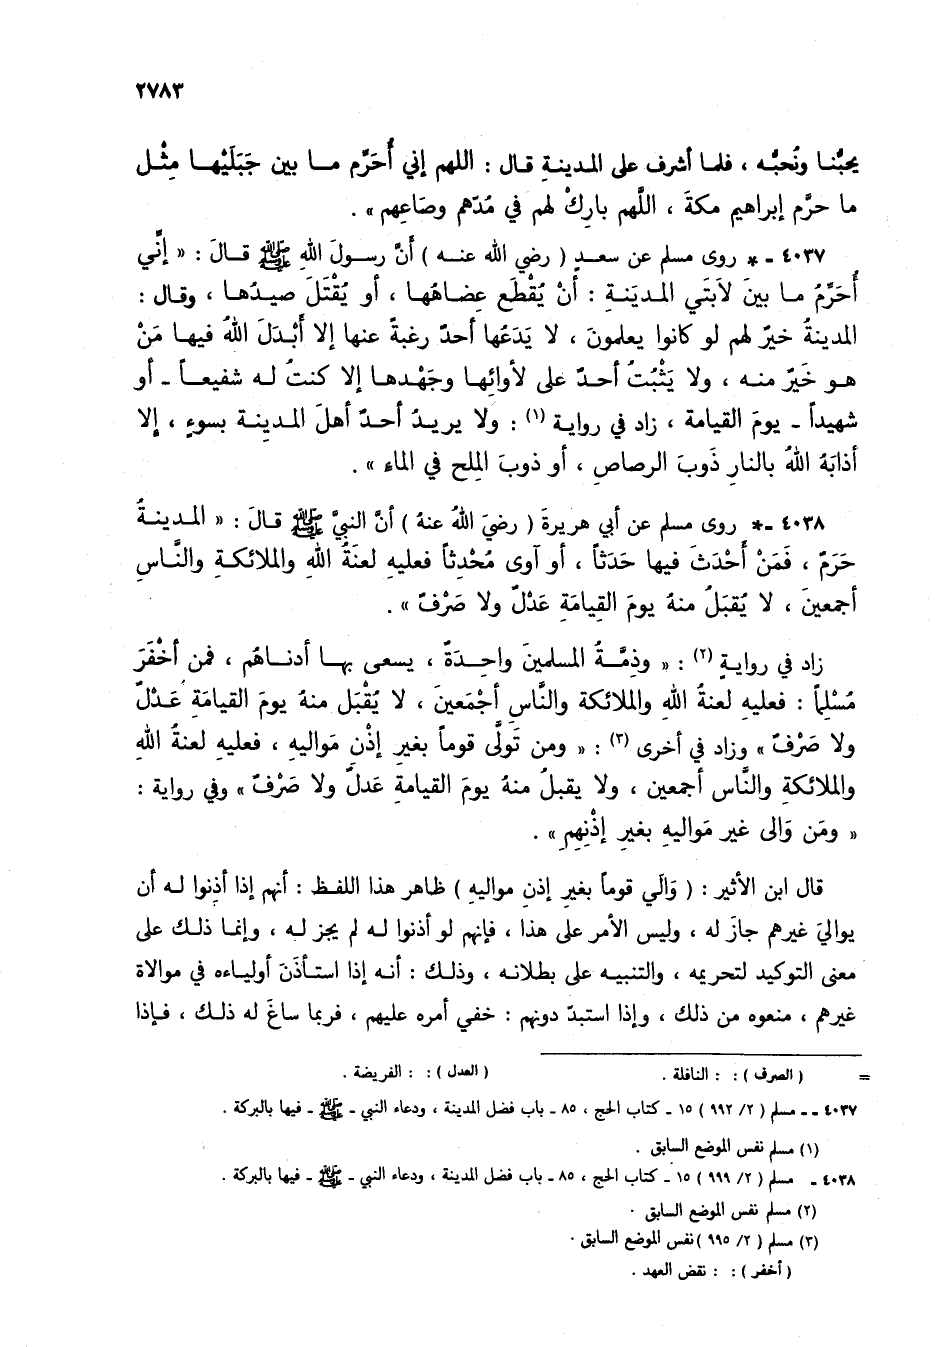 ٢٧٨٣
يحبُّنا ونُحبُّه ، فلما أشرف على المدينةِ قال : اللهم إني أُحَرِّم ما بين جَبَلَيْها مِثْل
ما حرَّم إبراهيم مكةَ ، اللَّهم بارِكْ لهم في مُدّهم وصَاعِهم » .
٤٠٣٧ - * روى مسلم عن سعدٍ ( رضي الله عنه ) أَنَّ رسولَ اللهِ ﷺ قالَ : « إنَّي
أُحَرِّمُ ما بينَ لاَبَتَي المدينَةِ : أنْ يُقْطَع عِضاهُها ، أو يُقْتَلَ صيدُها ، وقال :
المدينةُ خيرٌ لهم لو كانوا يعلمونَ ، لا يَدَعُها أحدٌ رغبةً عنها إلا أبْدَلَ اللهُ فيها مَنْ
هو خَيرٌ منه ، ولا يَثْبُتُ أحدٌ على لأوائِها وجَهْدها إلا كنتُ له شفيعاً - أو
شهيداً - يومَ القيامة ، زاد في رواية (١) : ولا يريدُ أحدٌ أهلَ المدينة بسوءٍ ، إلا
أذابَهُ اللهُ بالنارِ ذَوبَ الرصاص ، أو ذوبَ المِلح في الماء » .
٤٠٣٨ -* روى مسلم عن أبي هريرةَ ( رضيَ اللهُ عنهُ ) أنَّ النبيَّ ﷺ قالَ : « المدينةُ
حَرَمٌ ، فَمَنْ أَحْدَثَ فيها حَدَثاً ، أو آوى مُحْدِثاً فعليه لعنةُ اللهِ والملائكةِ والنَّاسِ
أجمعينَ ، لا يُقبَلُ منهُ يومَ القِيامَةِ عَدْلٌ ولا صَرْفٌ » .
زاد في روايةٍ (٢) : « وذِمَّةُ المسلمينَ واحِدَةٌ ، يسعى بها أدناهُم ، فمن أخْفَرَ
مُسْلِماً : فعليه لعنةُ اللهِ والملائكة والنَّاسِ أجْمَعينَ ، لا يُقْبَل منهُ يومَ القيامَةِ عَدْلٌ
ولا صَرْفٌ » وزاد في أخرى (٣) : « ومن تَولَّى قوماً بغيرِ إذْنِ مَواليهِ ، فعليهِ لعنةُ اللهِ
والملائكةِ والنَّاس أجمعين ، ولا يقبلُ منهُ يومَ القيامةِ عَدلٌ ولا صَرْفٌ » وفي رواية :
« ومَن وَالى غير مَواليهِ بغيرِ إذْنِهِم » .
قال ابن الأثير : ( وَالَي قوماً بغيرِ إذنِ مواليهِ ) ظاهر هذا اللفظ : أنهم إذا أذِنوا له أن
يواليَ غيرهم جازَ له ، وليس الأمر على هذا ، فإنهم لو أذنوا له لم يجز له ، وإنما ذلك على
معنى التوكيد لتحريمه ، والتنبيه على بطلانه ، وذلك : أنه إذا استأذَنَ أولياءه في موالاة
غيرهم ، منعوه من ذلك ، وإذا استبدّ دونهم : خفي أمره عليهم ، فربما ساغَ له ذلك ، فإذا
= ( الصرف ) : : النافلة . ( العدل ) : : الفريضة .
٤٠٣٧ -- مسلم ( ٢/ ٩٩٢ ) ١٥ - كتاب الحج ، ٨٥ - باب فضل المدينة ، ودعاء النبي - ﷺ - فيها بالبركة .
(١) مسلم نفس الموضع السابق .
٤٠٣٨ - مسلم ( ٢/ ٩٩٩ ) ١٥ - كتاب الحج ، ٨٥ - باب فضل المدينة ، ودعاء النبي - ﷺ - فيها بالبركة .
(٢) مسلم نفس الموضع السابق .
(٣) مسلم ( ٢/ ٩٩٥ ) نفس الموضع السابق .
( أخفر ) : : نقض العهد .